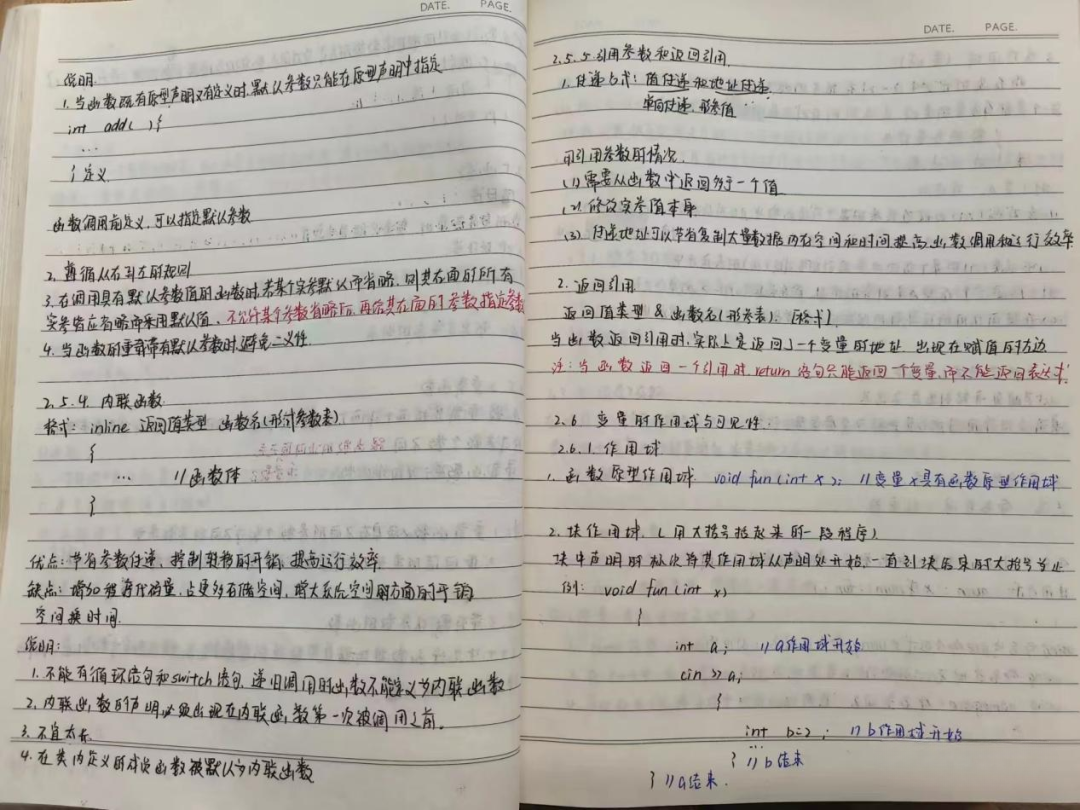 DATE. PAGE.
说明
1. 当函数既有原型声明又有定义时,默认参数只能在原型声明中指定
int add( ){
...
} 定义
函数调用前定义,可以指定默认参数
2. 遵循从右到左的规则
3. 在调用具有默认参数值的函数时,若某个实参默认即省略,则其右面的所有
实参皆应省略而采用默认值,不允许某个参数省略后,再给其右面的参数指定参数
4. 当函数的重载带有默认参数时,避免二义性
2.5.4. 内联函数
格式: inline 返回值类型 函数名(形式参数表)
{
... //函数体
}
优点:节省参数传递、控制转移的开销,提高运行效率
缺点:增加程序代码量,占更多存储空间,增大系统空间方面的开销
空间换时间
说明:
1. 不能有循环语句和switch语句,递归调用的函数不能定义为内联函数
2. 内联函数的声明必须出现在内联函数第一次被调用之前.
3. 不宜太长
4. 在类内定义的成员函数被默认为内联函数
DATE. PAGE.
2.5.5引用参数和返回引用
1.传递方式:值传递和地址传递
单向传递,形参值
用引用参数的情况
(1)需要从函数中返回多于一个值
(2)修改实参值本身
(3) 传递地址可以节省复制大量数据内存空间和时间提高函数调用和运行效率
2. 返回引用
返回值类型 & 函数名(形参表). [格式]
当函数返回引用时,实际上是返回了一个变量的地址,出现在赋值的左边
注:当函数返回一个引用时,return语句只能返回一个变量,而不能返回表达式.
2.6 变量的作用域与可见性.
2.6.1 作用域
1. 函数原型作用域 void fun (int x); //变量x具有函数原型作用域
2. 块作用域.(用大括号括起来的一段程序)
块中声明的标识符其作用域从声明处开始,一直到块结束的大括号为止
例: void fun (int x)
{
int a; //a作用域开始
cin >> a;
{
int b=2; //b作用域开始
...
} //b结束
} //a结束.